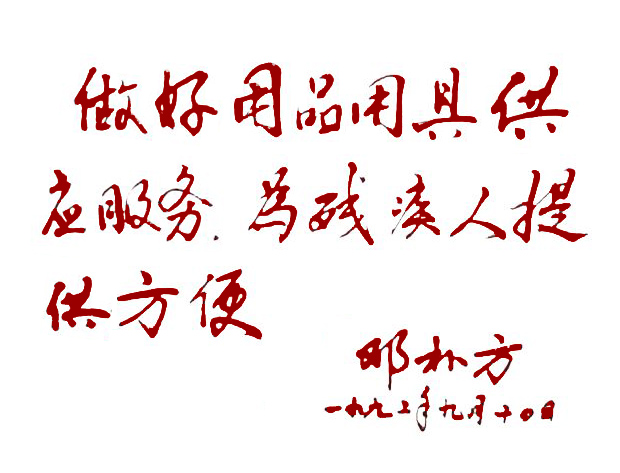 做好用品用具供
应服务.为残疾人提
供方便
邓朴方
一九九二年九月十日